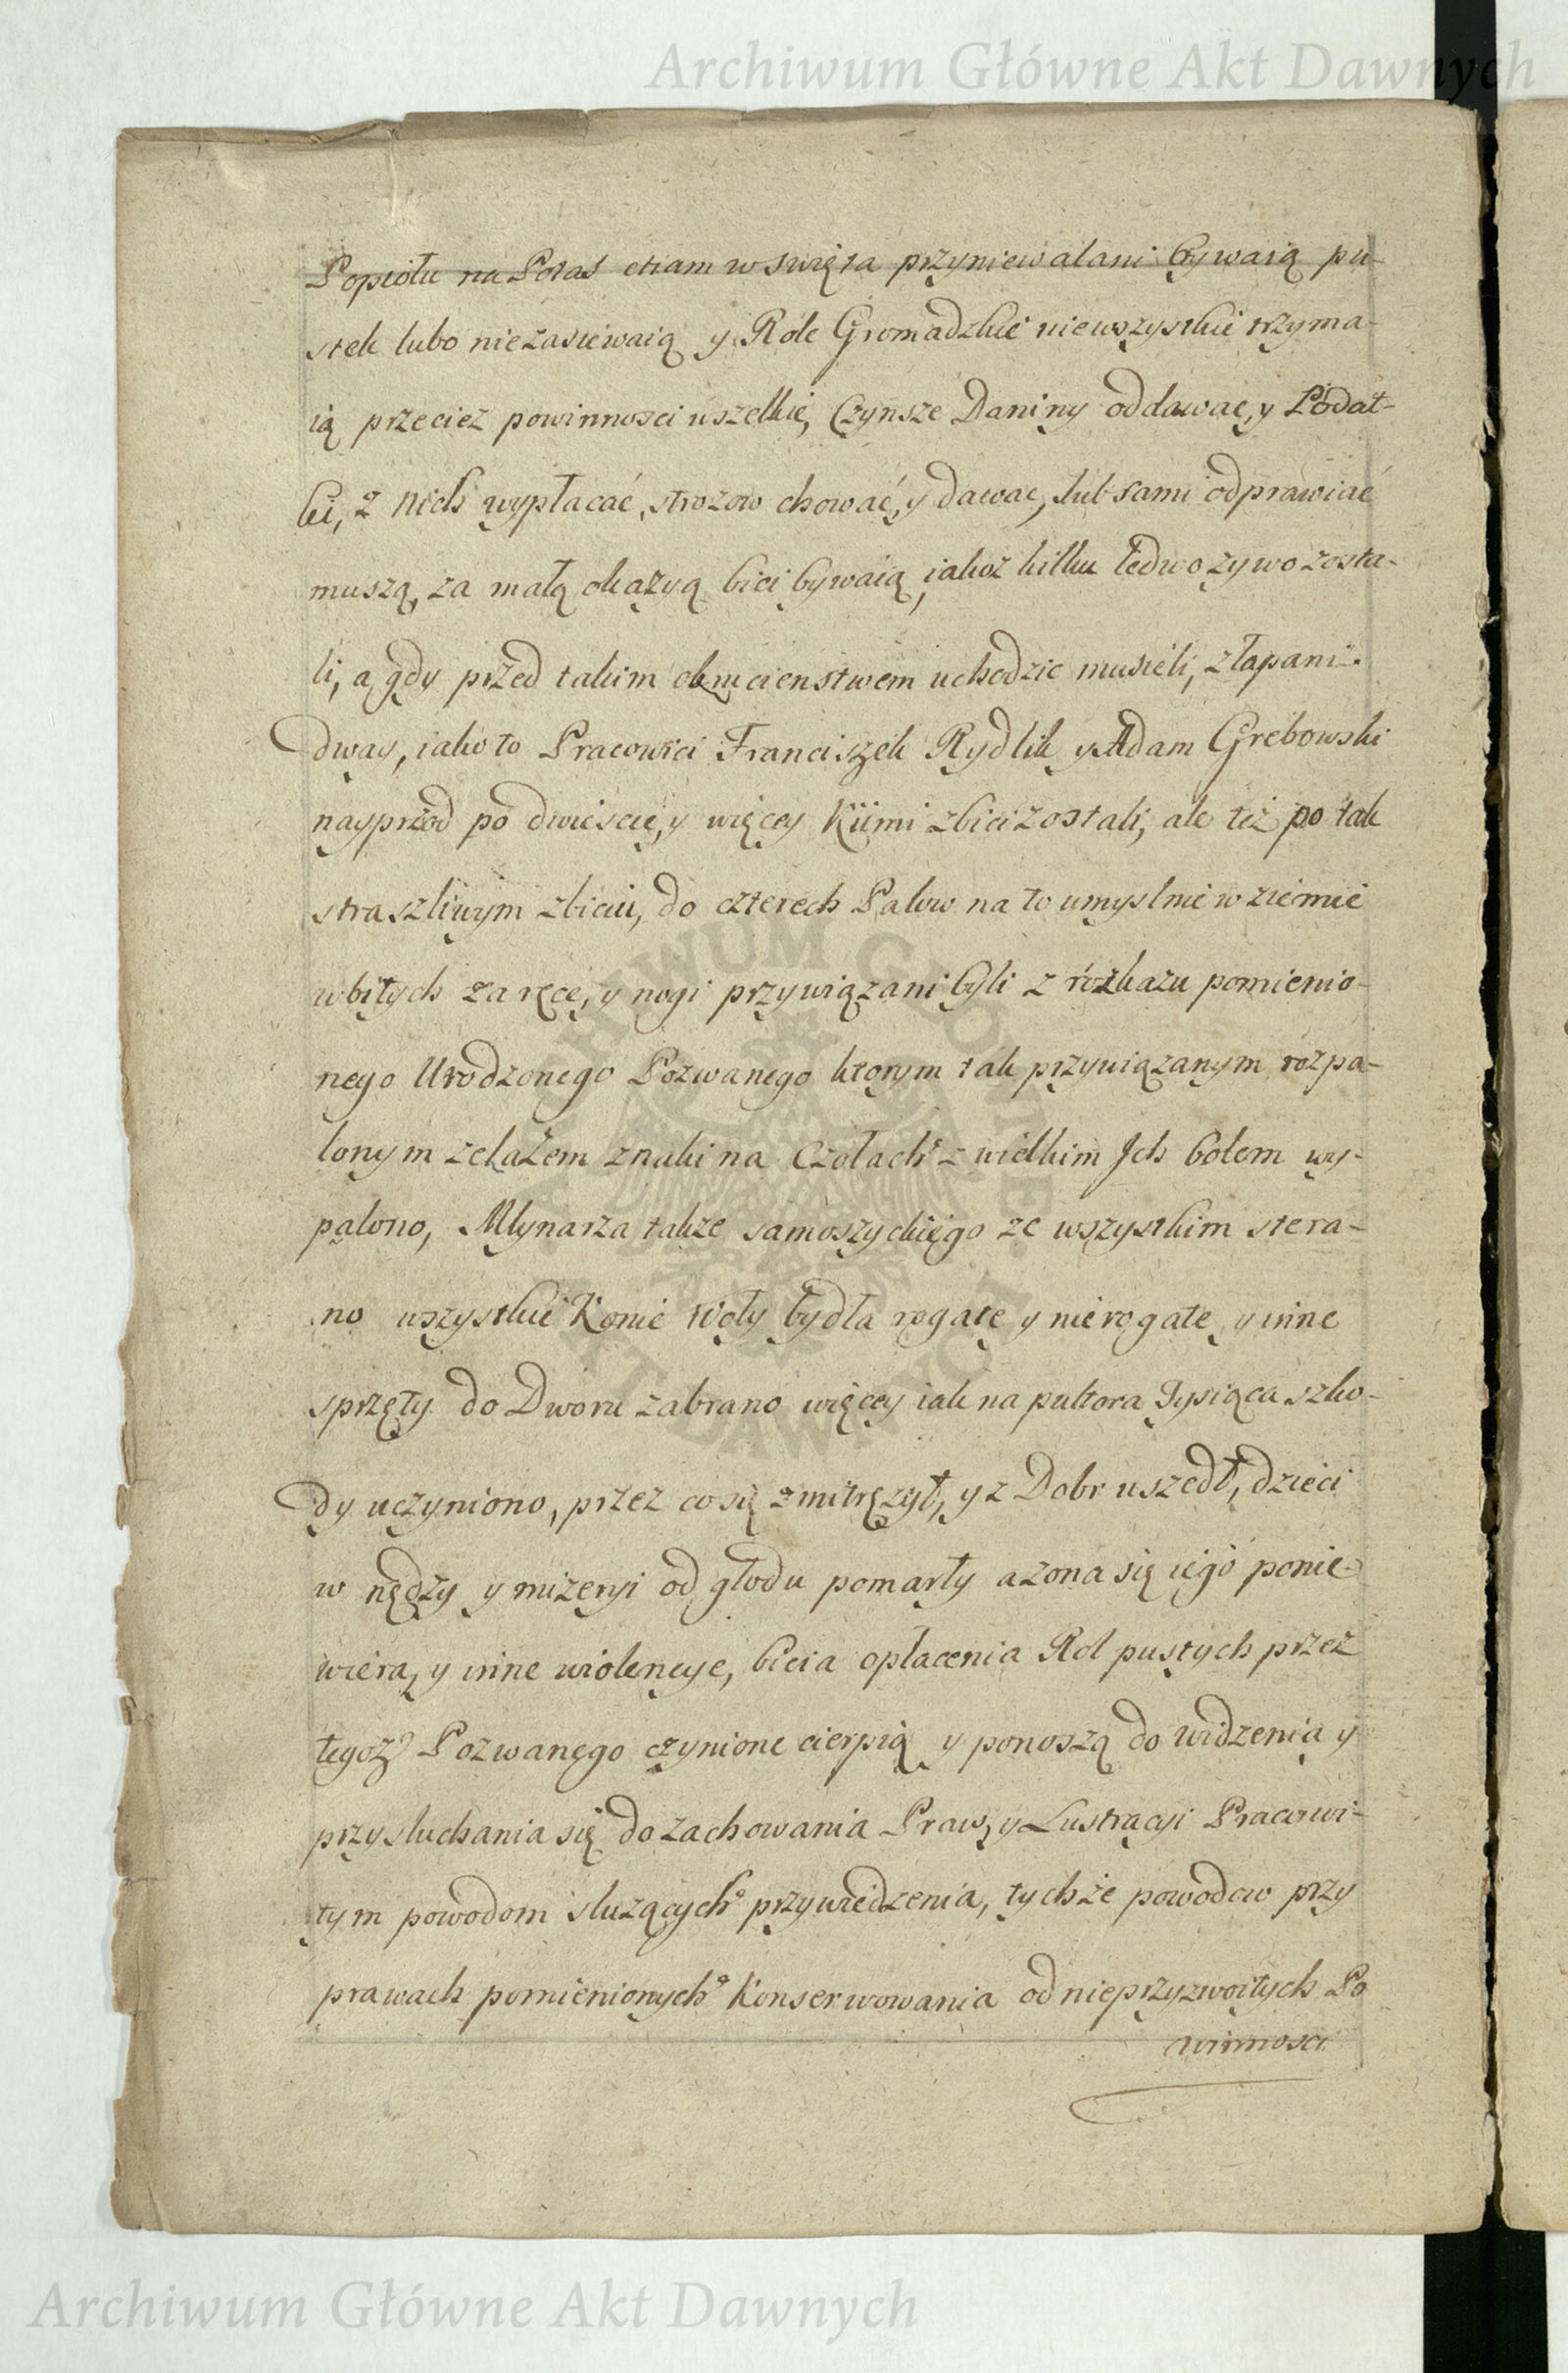 Archiwum Główne Akt Dawnych
Popiołu na Potaś etiam w święta przyniewalani bywaią pu-
stek lubo niezasiewaią y Role Gromadzkie niewszystkie trzyma-
ią przecież powinności wszelkie, Czynsze Daniny oddawać, y Podat-
ki, z nich wypłacać, strożow chować, y dawać, lub sami odprawiać
muszą, za małą okazyą bici bywaią, iakoż kilku ledwo żywo zosta-
li, a gdy przed takim okrucieństwem uchodzic musieli, złapani
dway, iako to Pracowici Franciszek Rydlik y Adam Grebowski
nayprzod po dwieście, y więcey Kiimi zbici zostali, ale też po tak
straszliwym zbiciu, do czterech Palow na to umyslnie w ziemie
wbitych za ręce, y nogi przywiązani byli z rozkazu pomienio-
nego Urodzonego Pozwanego ktorym tak przywiązanym rozpa-
lonym żelazem znaki na Czołach z wielkim Ich bolem wy-
palono, Młynarza także samoszyckiego ze wszystkim stera-
no wszystkie Konie Woły bydła rogate y nierogate y inne
sprzęty do Dworu zabrano więcey iak na pułtora Tysiąca szko-
dy uczyniono, przez co się zmitręzył, y z Dobr uszedł, dzieci
w nędzy y mizeryi od głodu pomarły a żona się iego ponie-
wiera, y inne wiolencye, bicia opłacenia Rol pustych przez
tegoż Pozwanego czynione cierpią y ponoszą do widzenia y
przysłuchania się do zachowania Praw, y Lustracyi Pracowi-
tym powodom służących przywiedzenia, tychże powodow przy
prawach pomienionych Konserwowania od nieprzyzwoitych Po
winnosci
Archiwum Główne Akt Dawnych